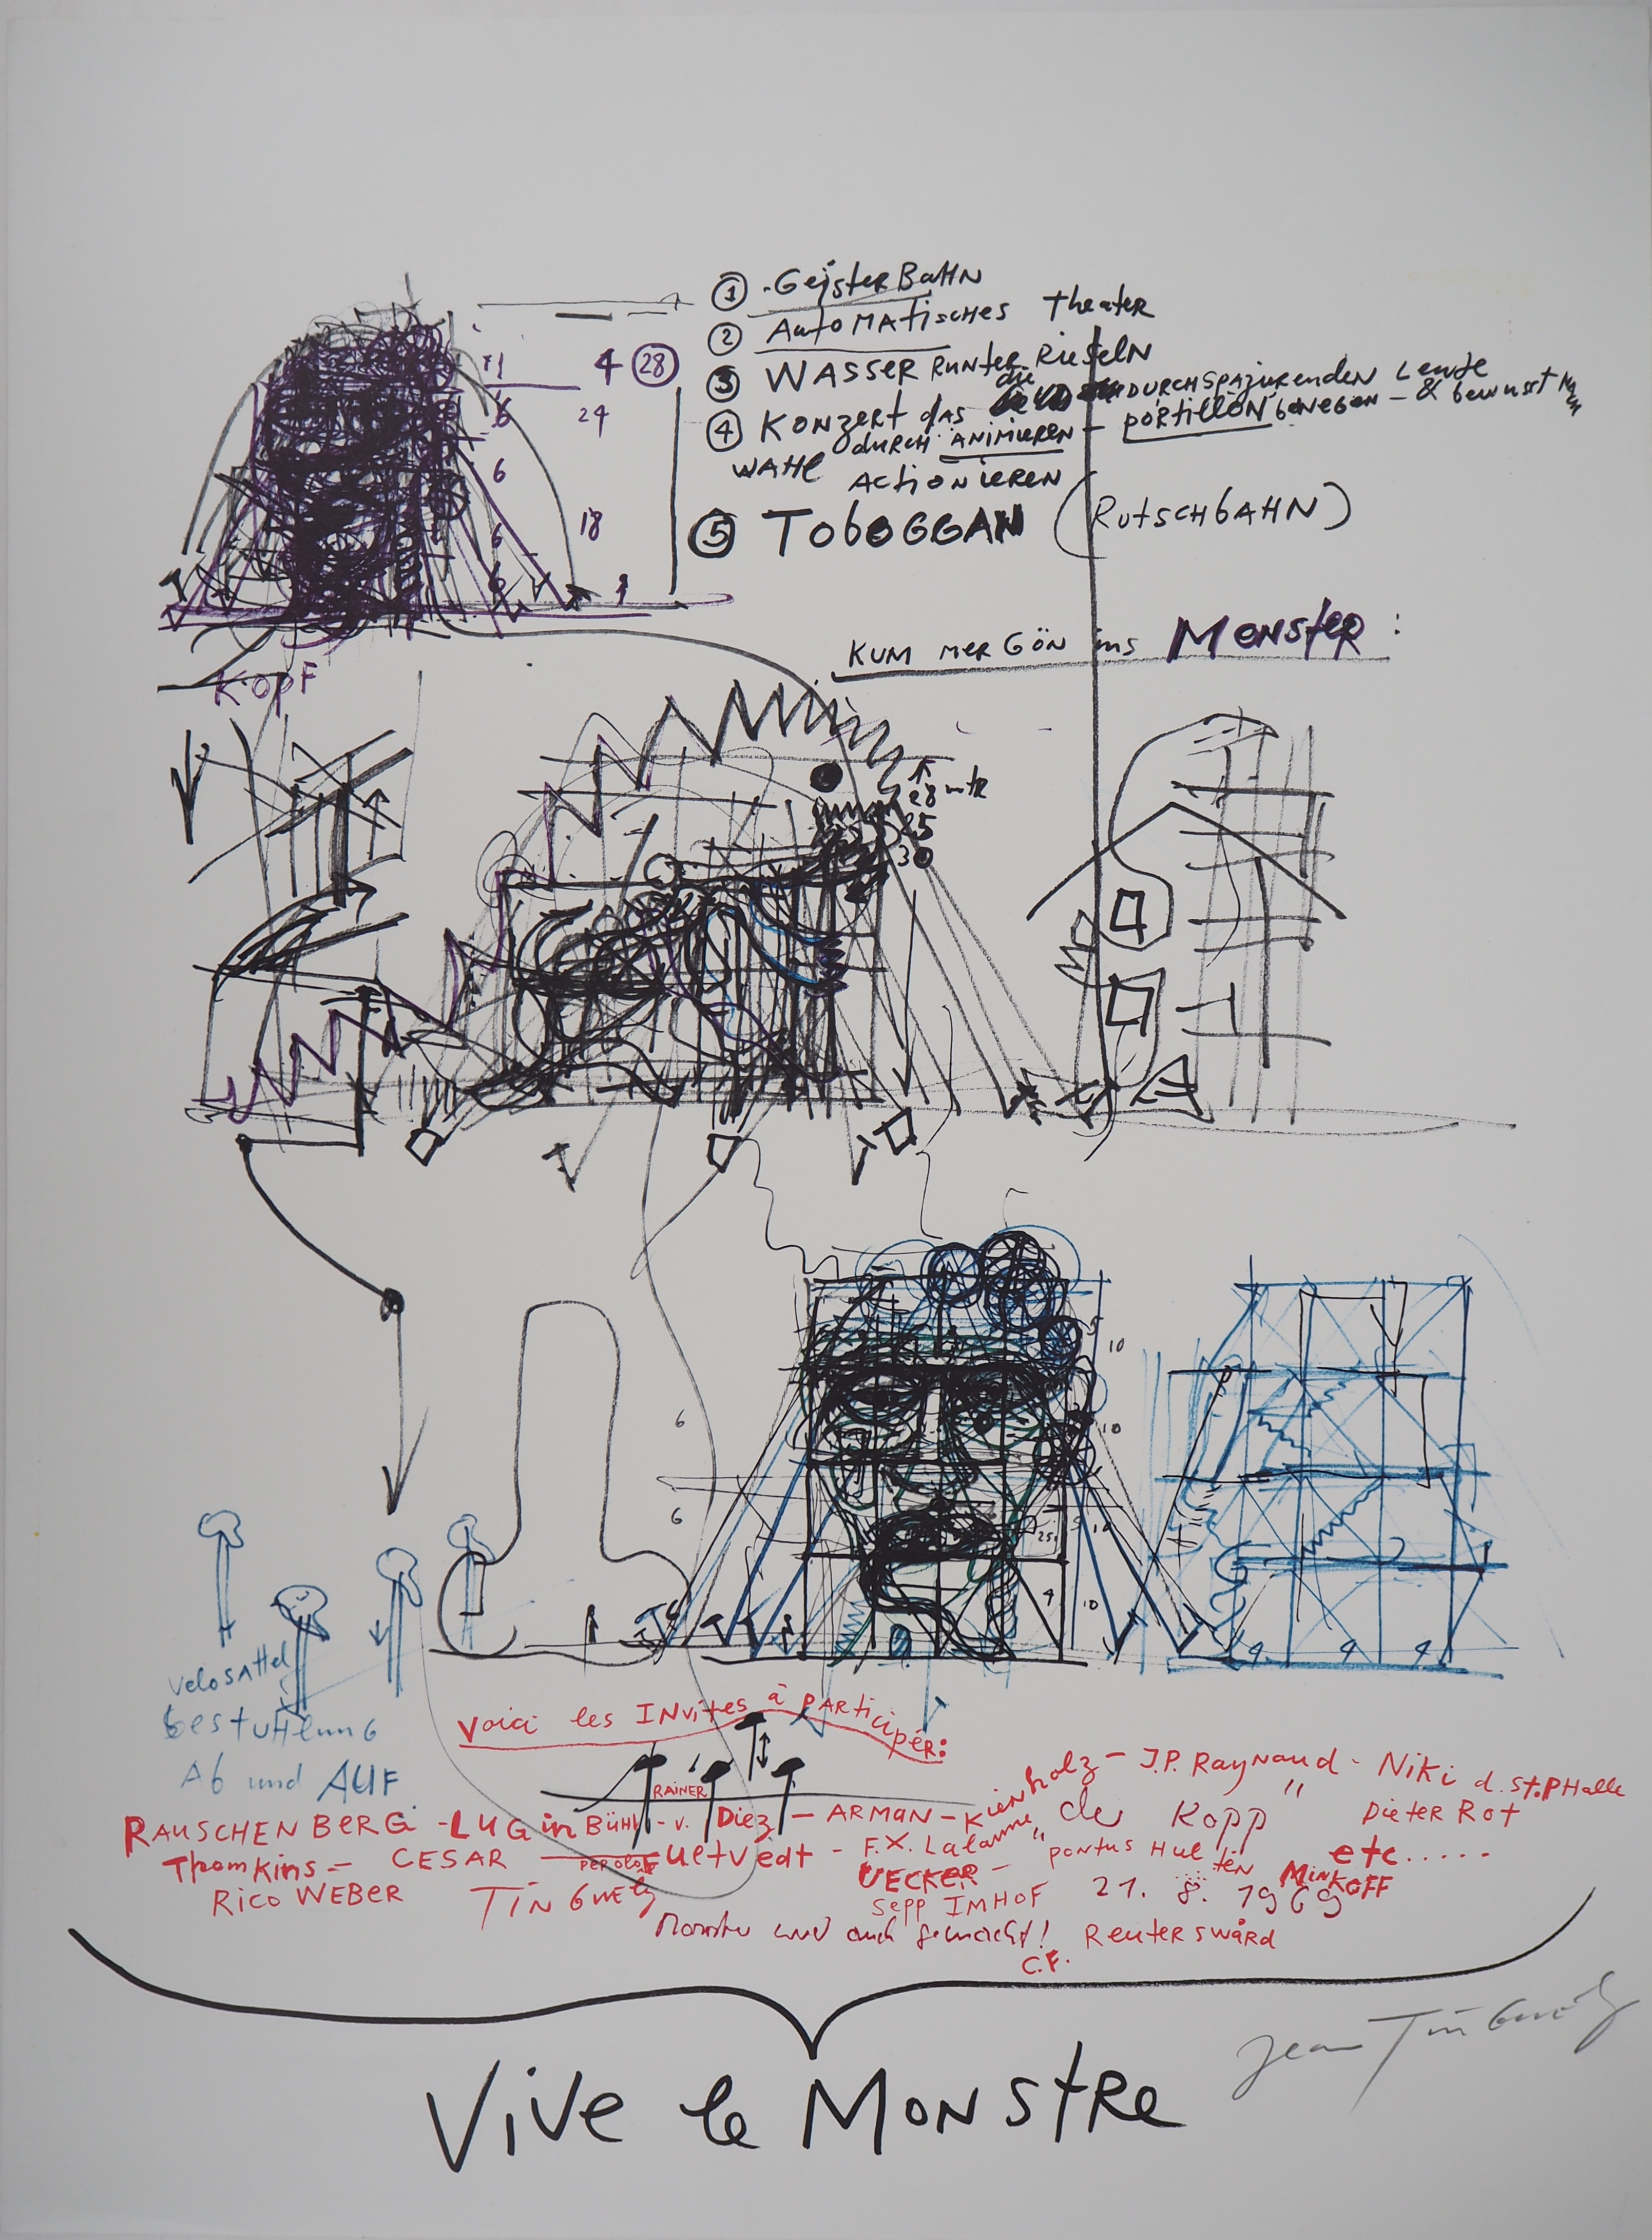 ① GeisterBahn
② AutoMAtisches Theater
③ WASSER RUNTER RieselN
die
④ KONZERT das DURCHSPAZIERENDEN Leute
durch ANIMIEREN - portillon bewegen - & bewusst
WAHL ACTIONIEREN
⑤ ToboGGAN (RutschbAHN)
11 4 ㉘
6 24
6
6 18
6
KUM MER GÖN ins MONSTER:
KOPF
28 mtr
25
30
5 10
10
6
6
25
10
4 10
4 4 4
velosAttel
bestuhlunG
Ab und AUF
Voici les INvités à pARticipér:
RAINER
RAUSCHENBERG - LUGinBühl - v. Diez - ARMAN - Kienholz - J.P. RayNaud - Niki d. St.PHalle
"de Kopp" Dieter Rot
Thomkins - CESAR per olof Ultvedt - F.X. Lalanne pontus Hulten etc.....
Rico WEBER TinGuely UECKER - MinkOFF
Sepp IMHOF 21. 8. 1969
Monster wird auch gemacht! Reuterswärd
C.F.
Vive le MONSTRe
Jean TinGuely